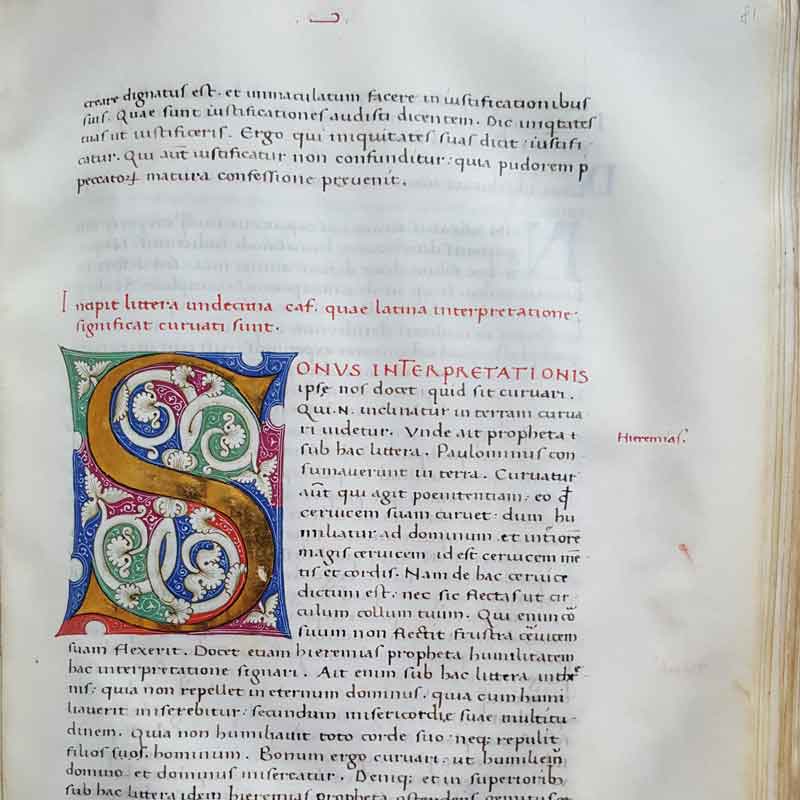 81
creare dignatus est. et immaculatum facere in iustificationibus
suis. Quae sunt iustificationes audisti dicentem. Dic iniqtates
tuas ut iustificeris. Ergo qui iniquitates suas dicit: iustifi
catur. Qui aut̄ iustificatur non confunditur: quia pudorem p
peccatoꝝ matura confessione preuenit.
Incipit littera undecima caf. quae latina interpretatione
significat curuati sunt.
SONUS INTERPRETATIONIS
ipse nos docet quid sit curuari.
Qui .N. inclinatur in terram curua
ri uidetur. Vnde ait propheta
sub hac littera. Paulominus con
sumauerunt in terra. Curuatur
aut̄ qui agit poenitentiam: eo ꝙ
ceruicem suam curuet: dum hu
miliatur ad dominum. et intiorē
magis ceruicem id est ceruicem mē
tis et cordis. Nam de hac ceruice
dictum est. nec sic flectas ut cir
culum collum tuum. Qui enim cō
suum non flectit frustra ceuicem
suam flexerit. Docet etiam hieremias propheta humilitatem
hac interpretatione signari. Ait enim sub hac littera
nis: quia non repellet in eternum dominus. quia cum humi
liauerit miserebitur: secundum misericordię suae multitu
dinem. Quia non humiliauit toto corde suo neq; repulit
filios suos. hominum. Bonum ergo curuari: ut humilieīn
domino et dominus misereatur. Deniq; et in superiorib;
sub hac littera idem hieremias propheta ostendens
Hieremias.